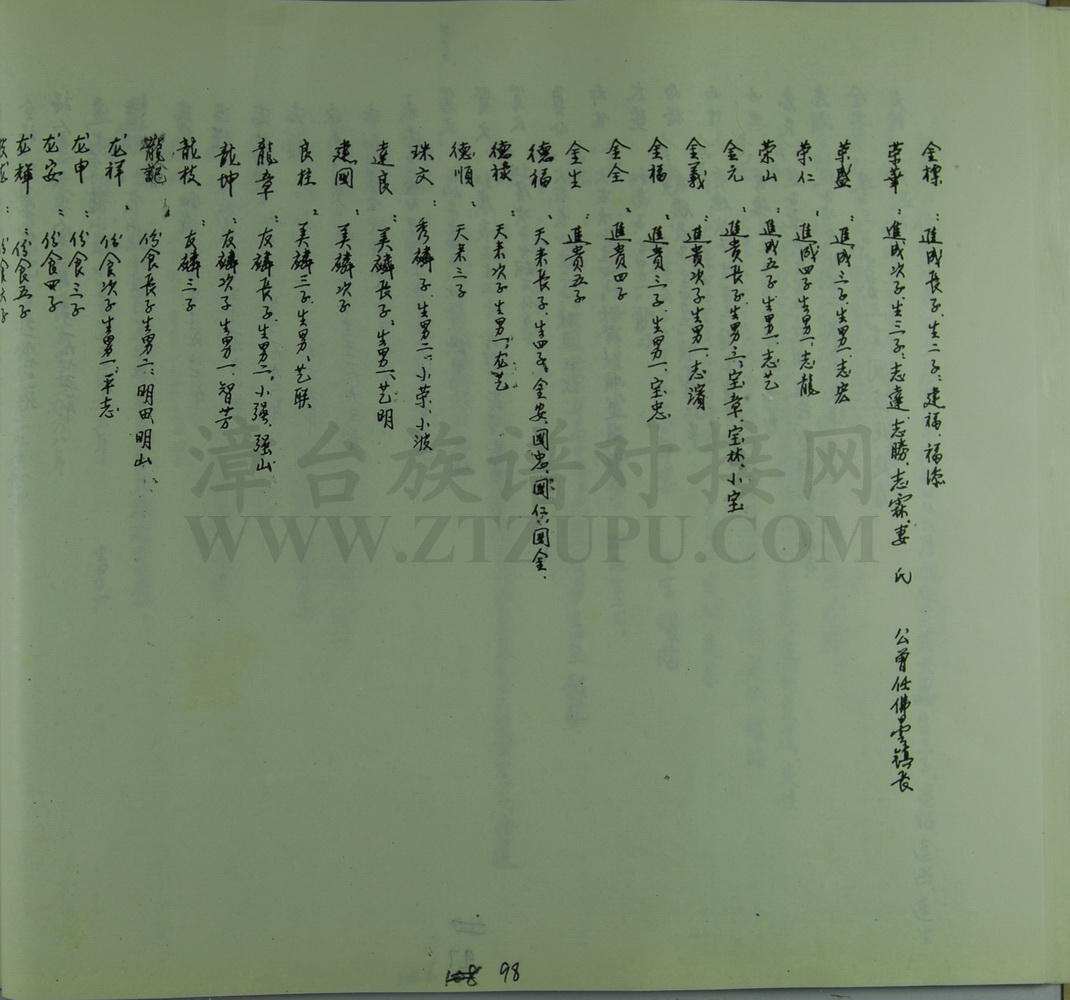 金標：進成長子，生二子：建福、福添
榮華：進成次子，生三子：志達、志勝、志霖，妻 氏 公曾任佛曇鎮長
榮盛：進成三子，生男一、志宏
榮仁：進成四子，生男一、志龍
榮山：進成五子，生男一、志艺
金元：進貴長子，生男三、宝章、宝林、小宝
金義：進貴次子，生男一、志濱
金福：進貴三子，生男一、宝忠
金全：進貴四子
金生：進貴五子
德福：天來長子，生四子，金安、國忠、國伍、國金、
德祿：天來次子，生男一、龙艺
德順：天來三子
珠文：秀麟子，生男二、小荣、小波
達良：美麟長子，生男一、艺明
建國：美麟次子
良桂：美麟三子，生男一、艺联
龍章：友麟長子，生男二，小强、强山
龍坤：友麟次子，生男一，智芳
龍枝：友麟三子
份食長子，生男二：明田、明山
龙祥：份食次子，生男一：平志
龙申：份食三子
龙安：份食四子
龙輝：份食五子
份食六子
漳台族谱对接网
WWW.ZTZUPU.COM
98